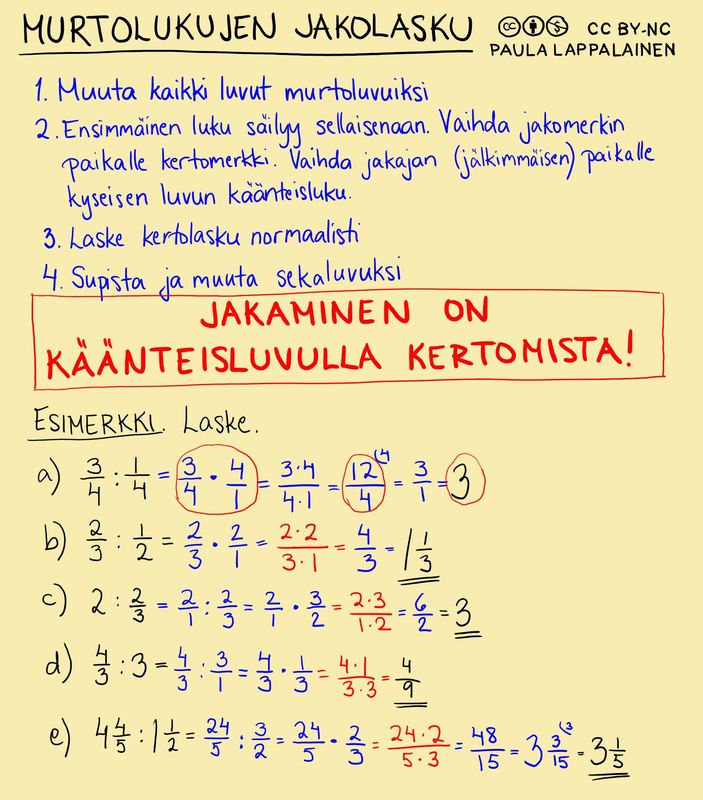 MURTOLUKUJEN JAKOLASKU
CC BY-NC
PAULA LAPPALAINEN
1. Muuta kaikki luvut murtoluvuiksi
2. Ensimmäinen luku säilyy sellaisenaan. Vaihda jakomerkin
paikalle kertomerkki. Vaihda jakajan (jälkimmäisen) paikalle
kyseisen luvun käänteisluku.
3. Laske kertolasku normaalisti
4. Supista ja muuta sekaluvuksi
JAKAMINEN ON
KÄÄNTEISLUVULLA KERTOMISTA!
ESIMERKKI. Laske.
a) 3/4 : 1/4 = 3/4 · 4/1 = 3·4/4·1 = 12/4 (4 = 3/1 = 3
b) 2/3 : 1/2 = 2/3 · 2/1 = 2·2/3·1 = 4/3 = 1 1/3
c) 2 : 2/3 = 2/1 : 2/3 = 2/1 · 3/2 = 2·3/1·2 = 6/2 = 3
d) 4/3 : 3 = 4/3 : 3/1 = 4/3 · 1/3 = 4·1/3·3 = 4/9
e) 4 4/5 : 1 1/2 = 24/5 : 3/2 = 24/5 · 2/3 = 24·2/5·3 = 48/15 = 3 3/15 (3 = 3 1/5